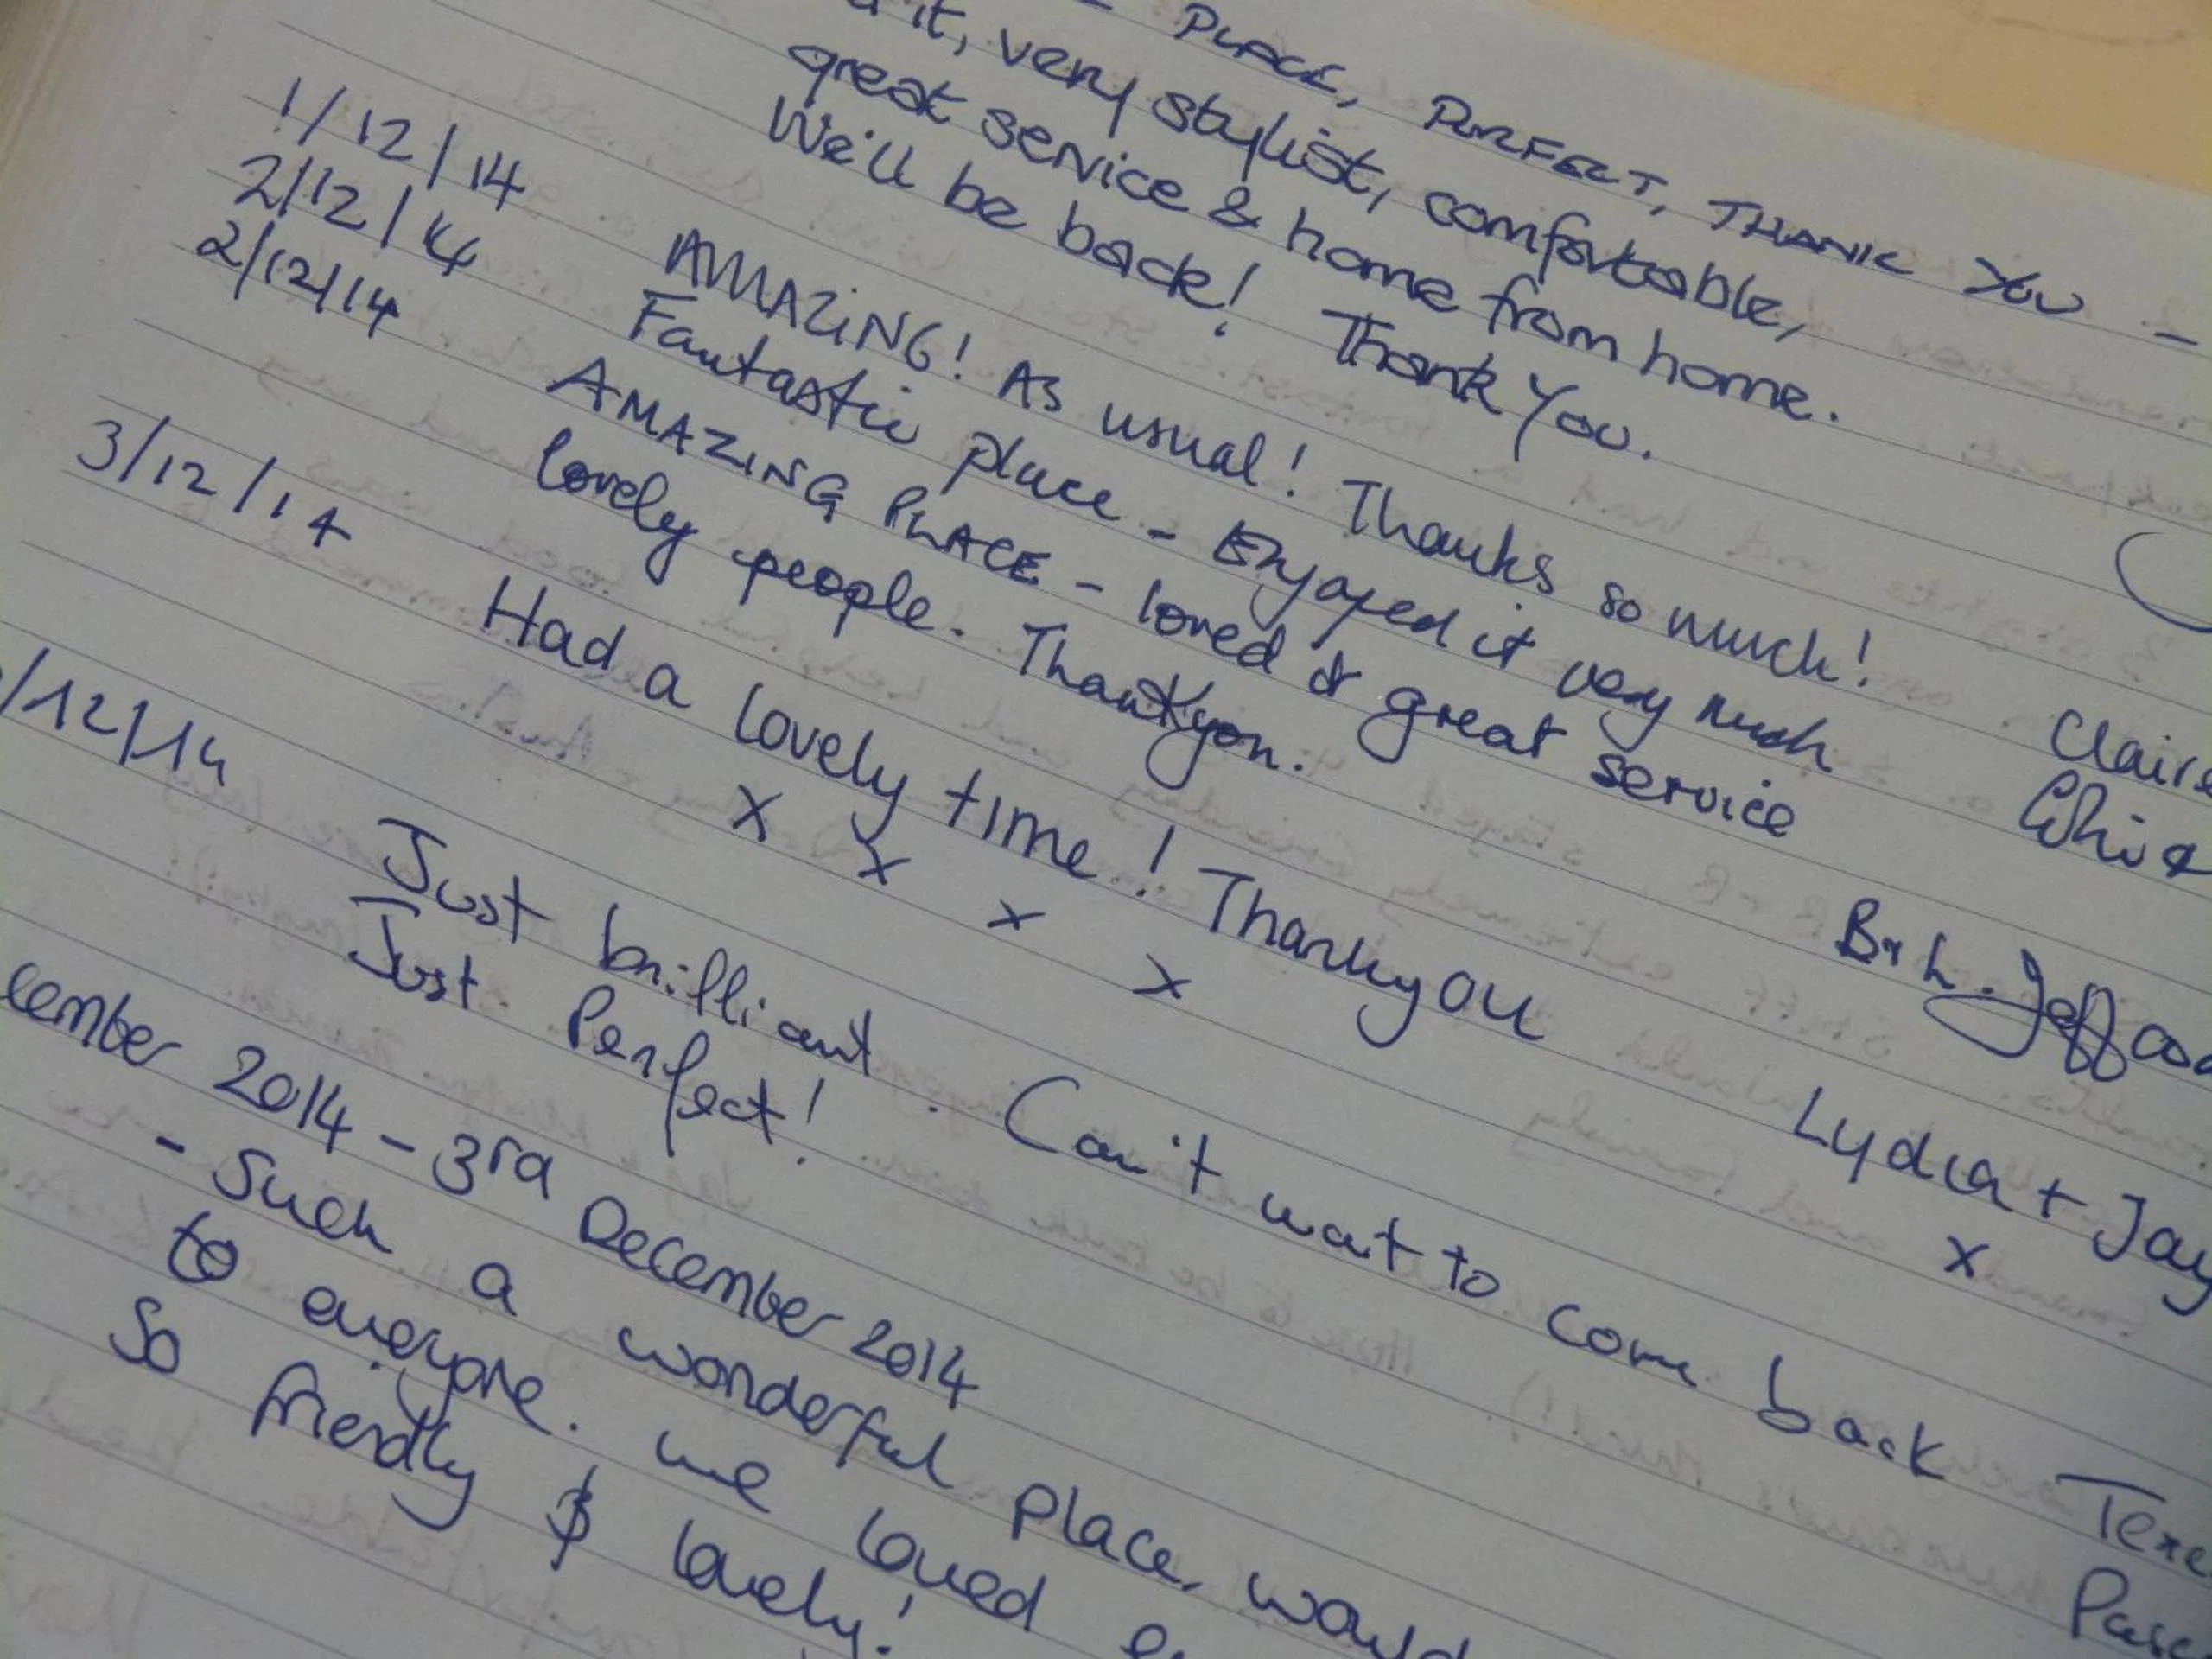 PLACE, PERFECT, THANK YOU -
it, very stylist, comfortable,
great service & home from home.
We'll be back! Thank You.
1/12/14 AMAZING! As usual! Thanks so much! Claire
2/12/14 Fantastic place - Enjoyed it very much
2/12/14 AMAZING PLACE - loved it great service
lovely people. Thankyou. B+L. Jeff
3/12/14 Had a lovely time! Thankyou Lydia + Jay
x x x x x
/12/14 Just brilliant. Can't wait to come back
Just Perfect!
cember 2014 - 3rd December 2014
- Such a wonderful place, would
to everyone. we loved
So friendly $ lovely!